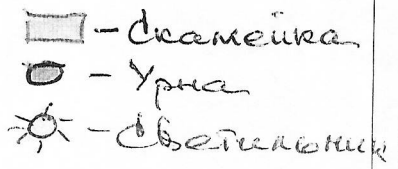 – Скамейка
– Урна
– Светильник